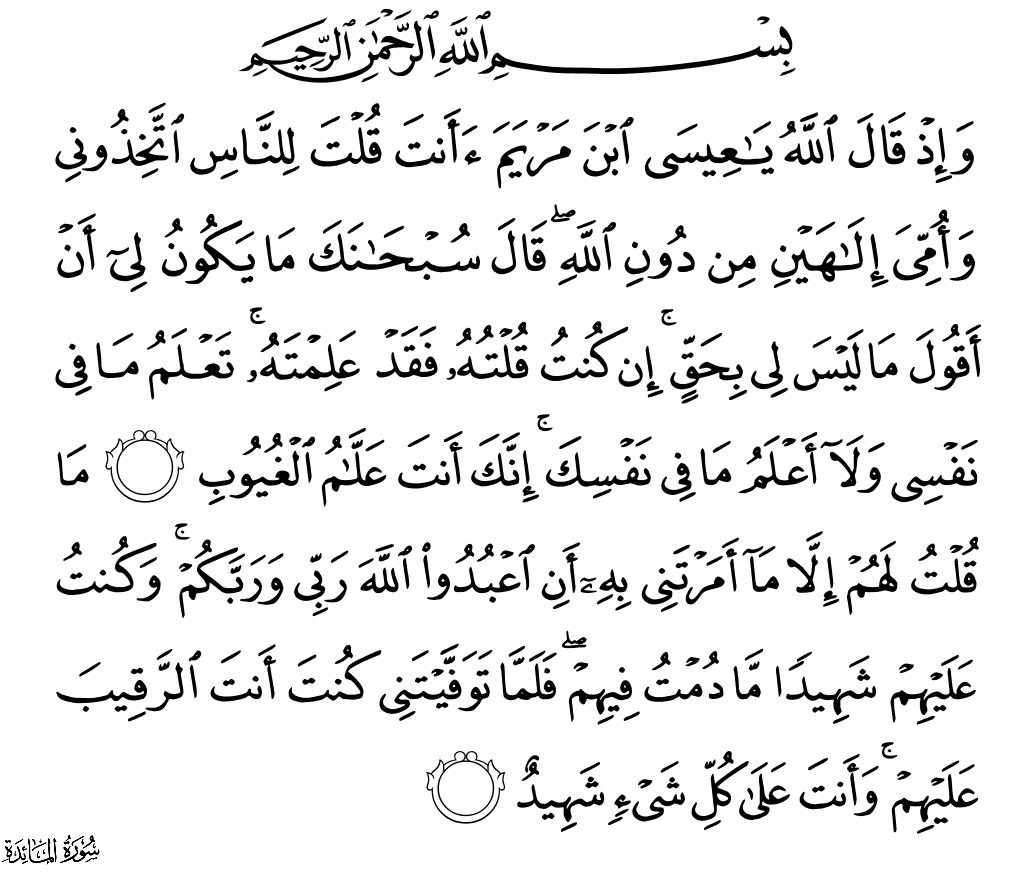 بِسْمِ ٱللَّهِ ٱلرَّحْمَٰنِ ٱلرَّحِيمِ
وَإِذْ قَالَ ٱللَّهُ يَـٰعِيسَى ٱبْنَ مَرْيَمَ ءَأَنتَ قُلْتَ لِلنَّاسِ ٱتَّخِذُونِى
وَأُمِّىَ إِلَـٰهَيْنِ مِن دُونِ ٱللَّهِ ۖ قَالَ سُبْحَـٰنَكَ مَا يَكُونُ لِىٓ أَنْ
أَقُولَ مَا لَيْسَ لِى بِحَقٍّ ۚ إِن كُنتُ قُلْتُهُۥ فَقَدْ عَلِمْتَهُۥ ۚ تَعْلَمُ مَا فِى
نَفْسِى وَلَآ أَعْلَمُ مَا فِى نَفْسِكَ ۚ إِنَّكَ أَنتَ عَلَّـٰمُ ٱلْغُيُوبِ ۝ مَا
قُلْتُ لَهُمْ إِلَّا مَآ أَمَرْتَنِى بِهِۦٓ أَنِ ٱعْبُدُوا۟ ٱللَّهَ رَبِّى وَرَبَّكُمْ ۚ وَكُنتُ
عَلَيْهِمْ شَهِيدًا مَّا دُمْتُ فِيهِمْ ۖ فَلَمَّا تَوَفَّيْتَنِى كُنتَ أَنتَ ٱلرَّقِيبَ
عَلَيْهِمْ ۚ وَأَنتَ عَلَىٰ كُلِّ شَىْءٍ شَهِيدٌ ۝
سُورَةُ المَائِدَةِ